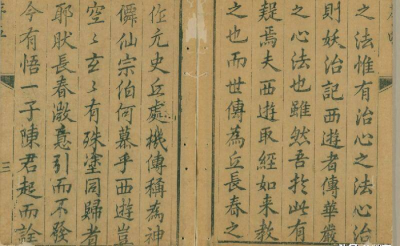 之法惟有治心之法心治
則妖治記西遊者傳華嚴
之心法也雖然吾於此有
疑焉夫西遊取經如來教
之也而世傳為丘長春之
作元史丘處機傳稱為神
僊仙宗伯何慕乎西遊豈
空〻玄〻有殊塗同歸者
耶狀長春微意引而不發
今有悟一子陳君起而詮
三